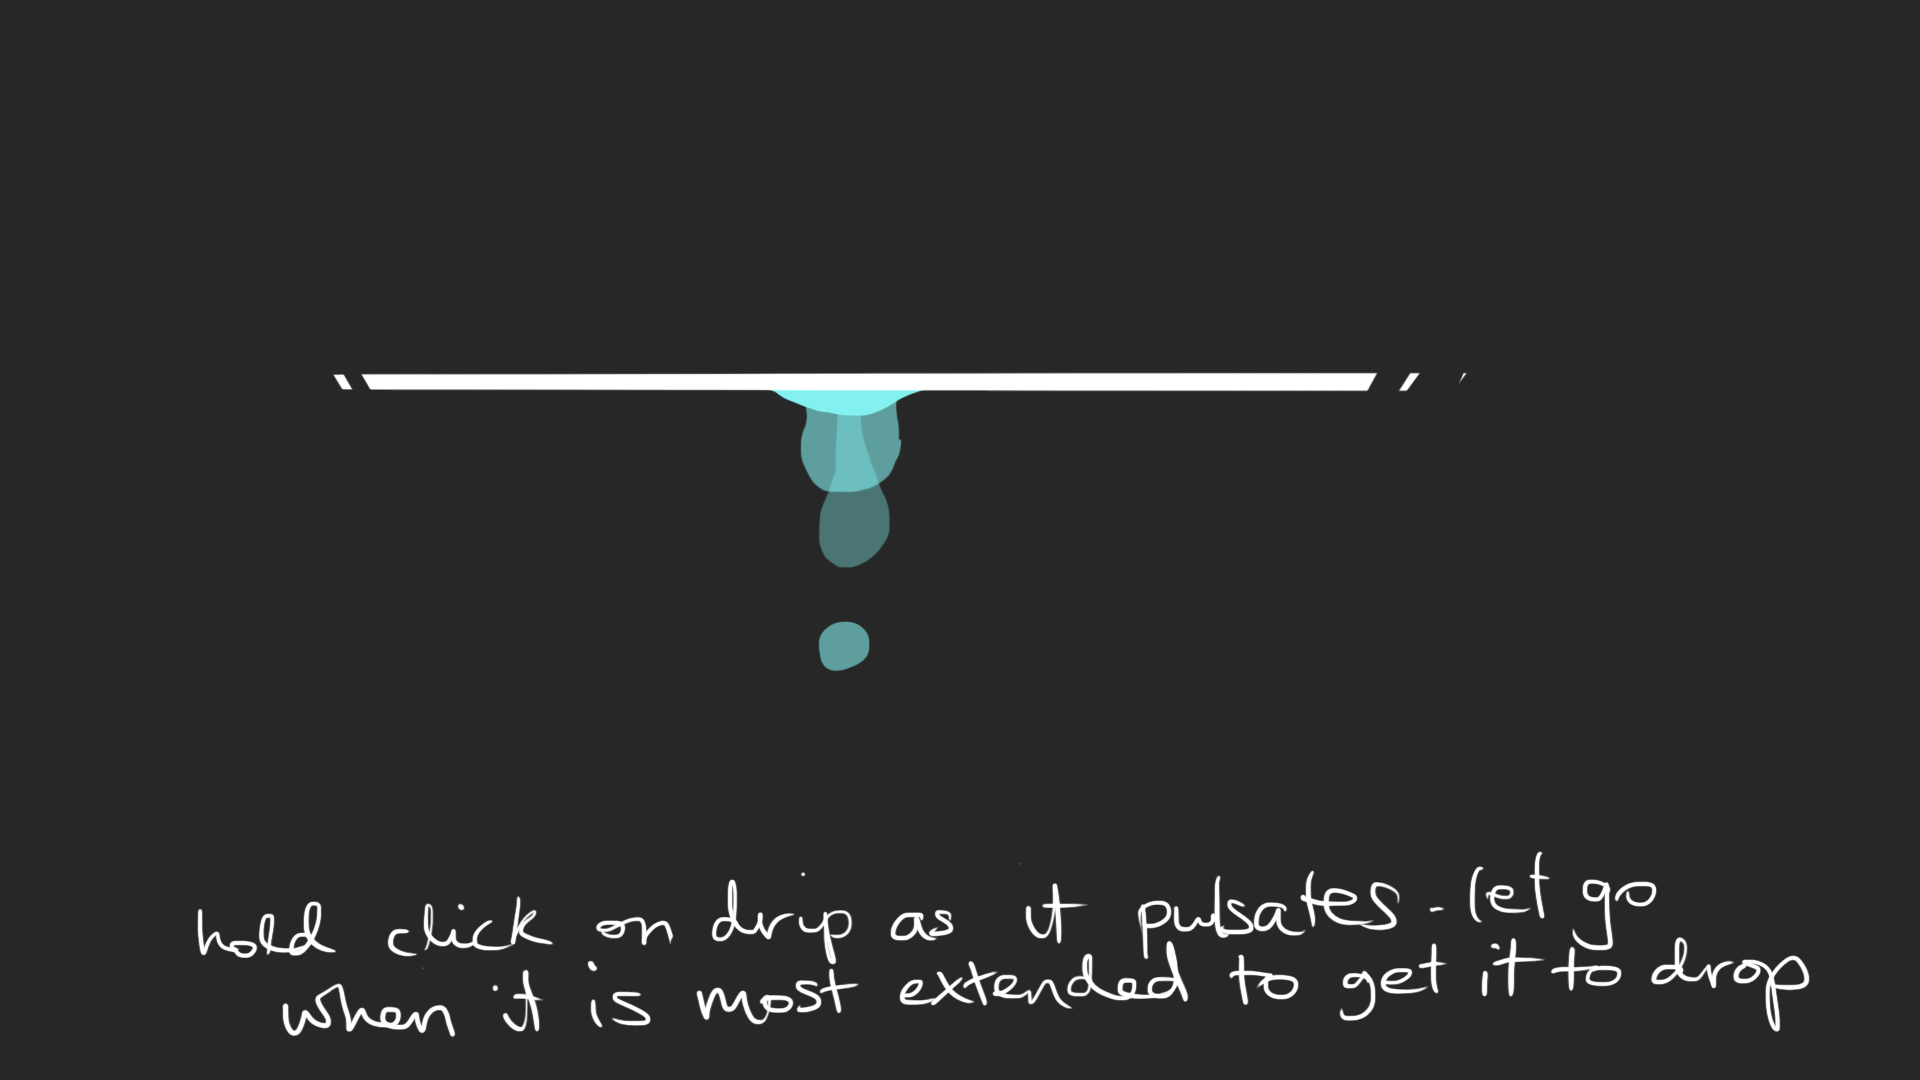 hold click on drip as it pulsates. let go
when it is most extended to get it to drop